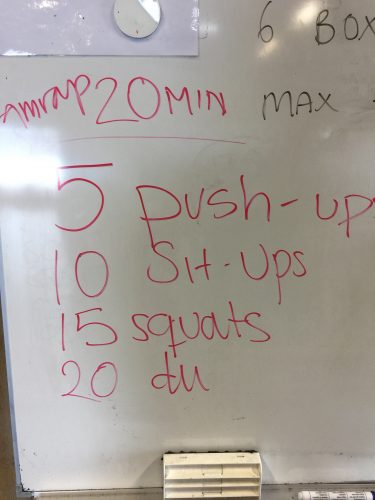 6 BOX
Amrap 20 MIN MAX
5 push-ups
10 Sit-ups
15 squats
20 du